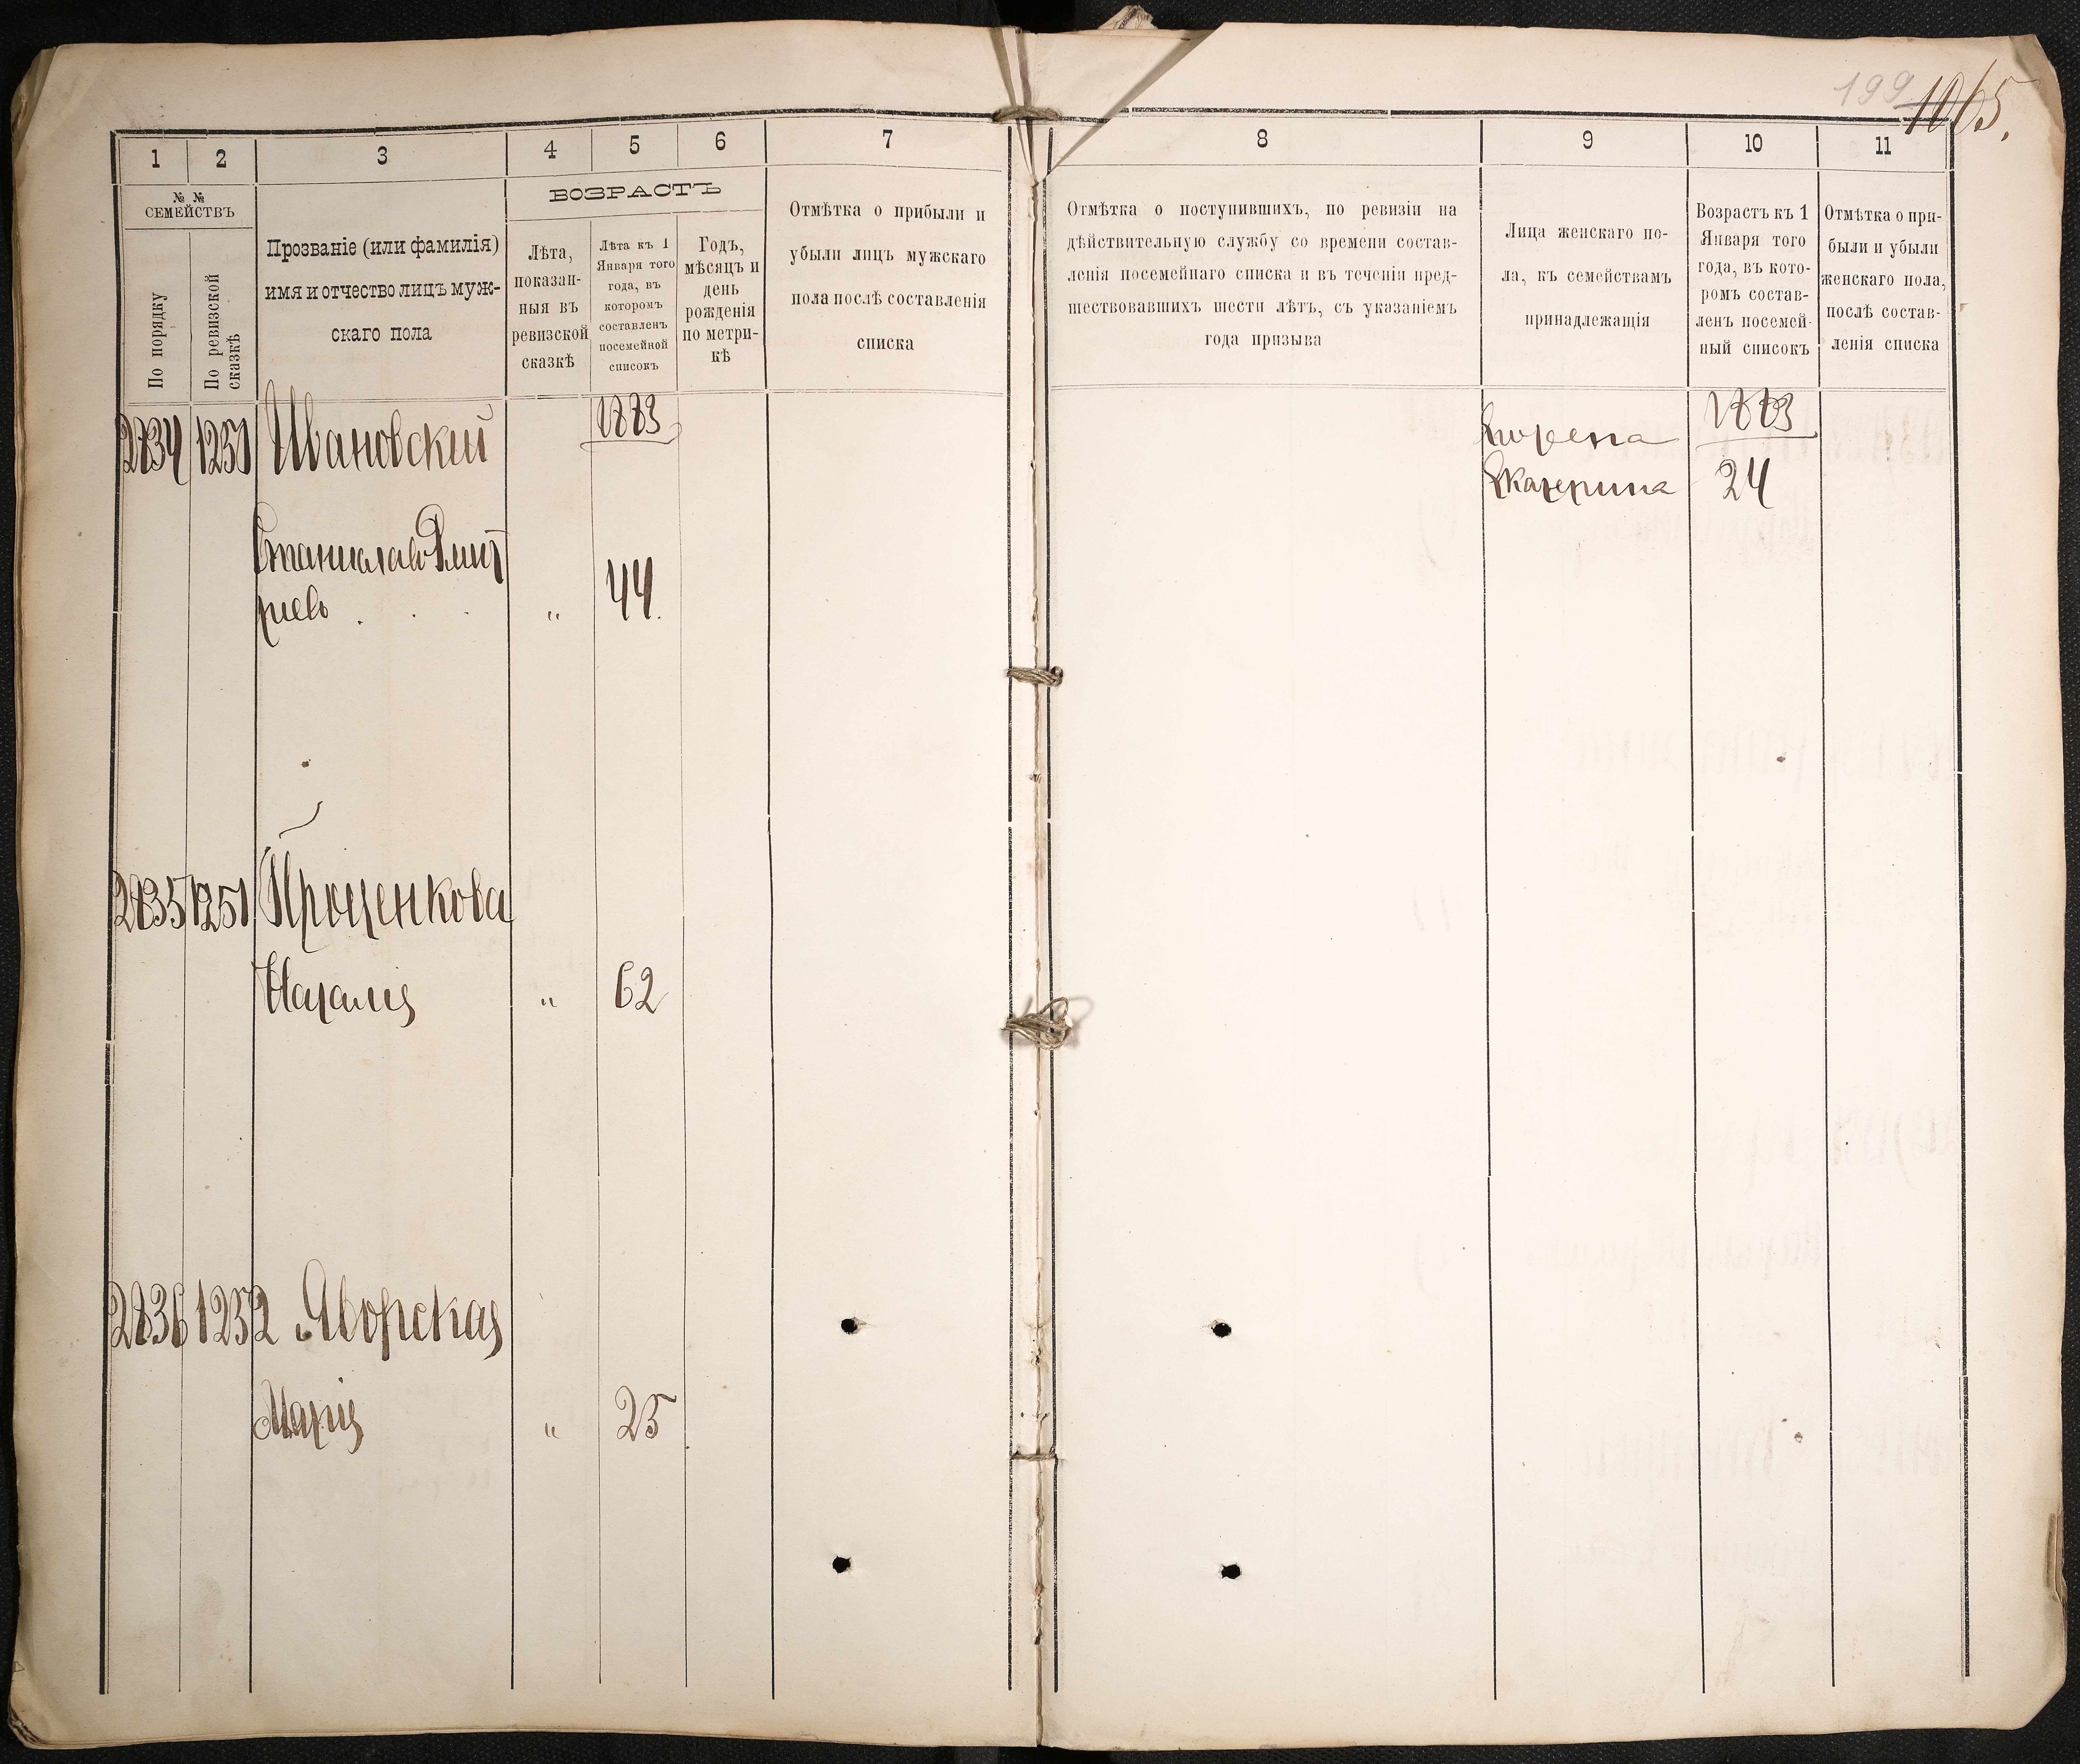 199 1065.
1
2
3
4
5
6
7
8
9
10
11
№ №
СЕМЕЙСТВЪ
По порядку
По ревизской
сказкѣ
Прозваніе (или фамилія)
имя и отчество лицъ муж-
скаго пола
ВОЗРАСТЪ
Лѣта,
показан-
ныя въ
ревизской
сказкѣ
Лѣта къ 1
Января того
года, въ
которомъ
составленъ
посемейной
списокъ
Годъ,
мѣсяцъ и
день
рожденія
по метри-
кѣ
Отмѣтка о прибыли и
убыли лицъ мужскаго
пола послѣ составленія
списка
Отмѣтка о поступившихъ, по ревизіи на
дѣйствительную службу со времени состав-
ленія посемейнаго списка и въ теченіи пред-
шествовавшихъ шести лѣтъ, съ указаніемъ
года призыва
Лица женскаго по-
ла, къ семействамъ
принадлежащія
Возрастъ къ 1
Января того
года, въ кото-
ромъ состав-
ленъ посемей-
ный списокъ
Отмѣтка о при-
были и убыли
женскаго пола,
послѣ состав-
ленія списка
2834 1250 Ивановский 1883
Станиславъ Дмит
риевъ . . . „ 44.
1883
Екатерина 24
2835 1251 Проценкова
Наталія „ 62
2836 1252 Яворская
Марія „ 25